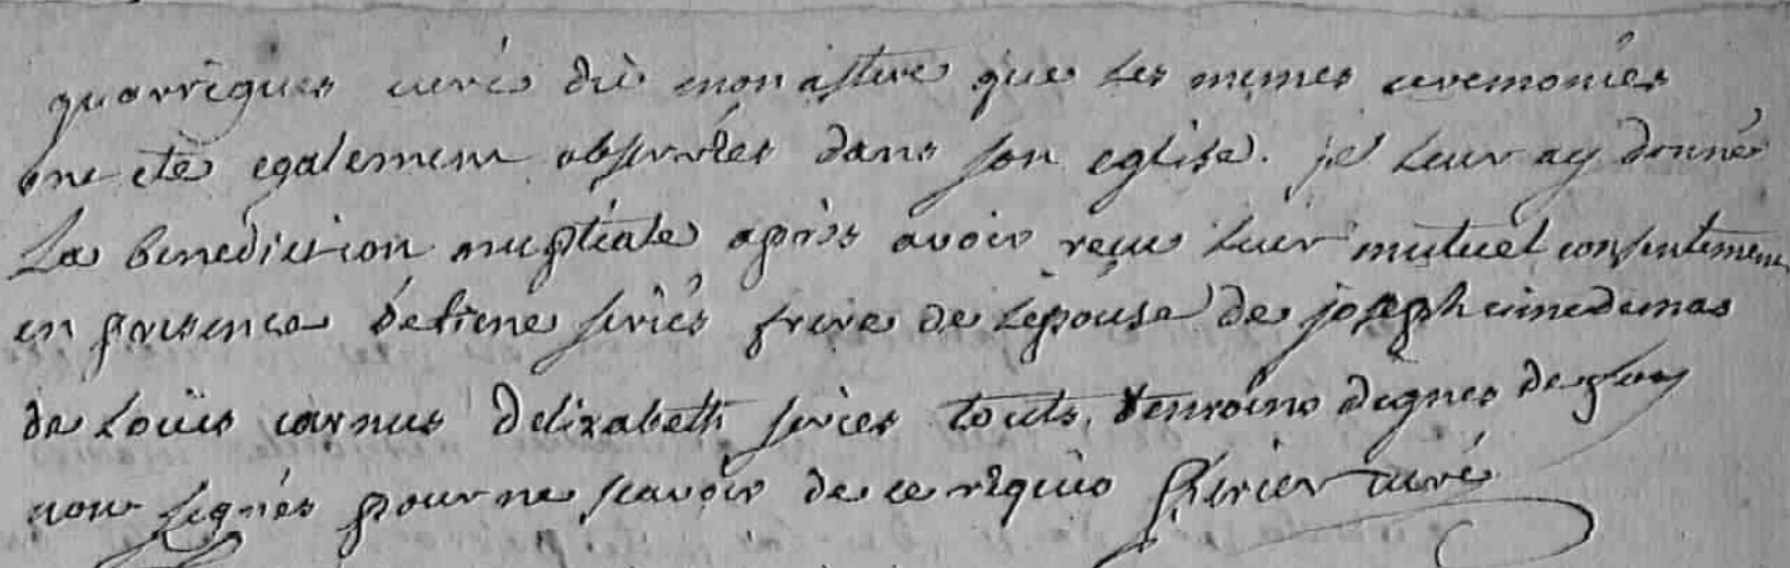 quarrigues curé du monastere que les memes ceremonies
ont eté egalement observées dans son eglise. je leur ay donné
La benediction nuptiale après avoir reçu leur mutuel consentement
en presence detiene siriés frere de lepouse de joseph
de Loüis carnus delizabeth siriés touts temoins dignes de foy
non signés pour ne scavoir de ce requis curé